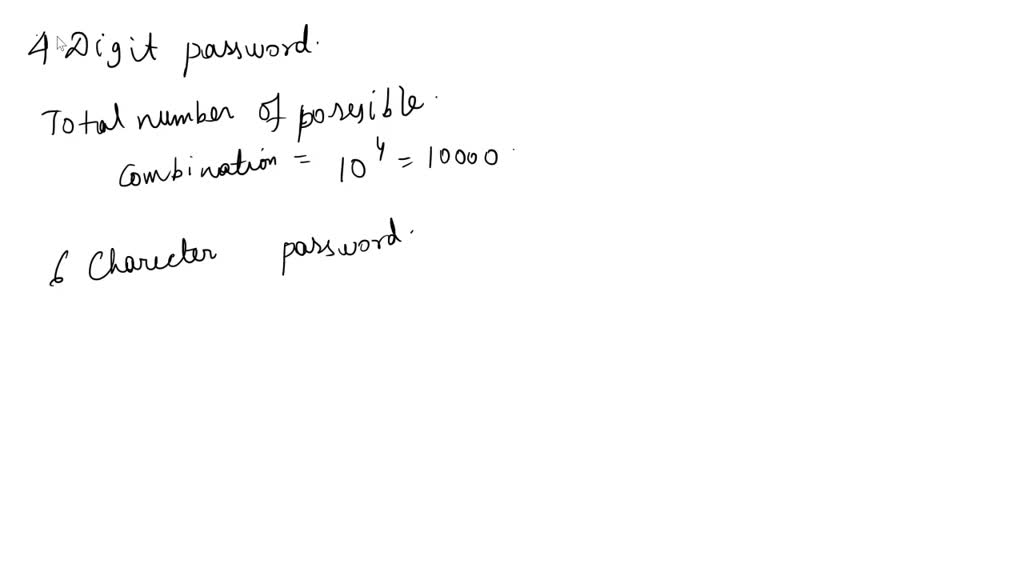 4 Digit password.
Total number of possible.
Combination = 10^4 = 10000
6 Charecter password.